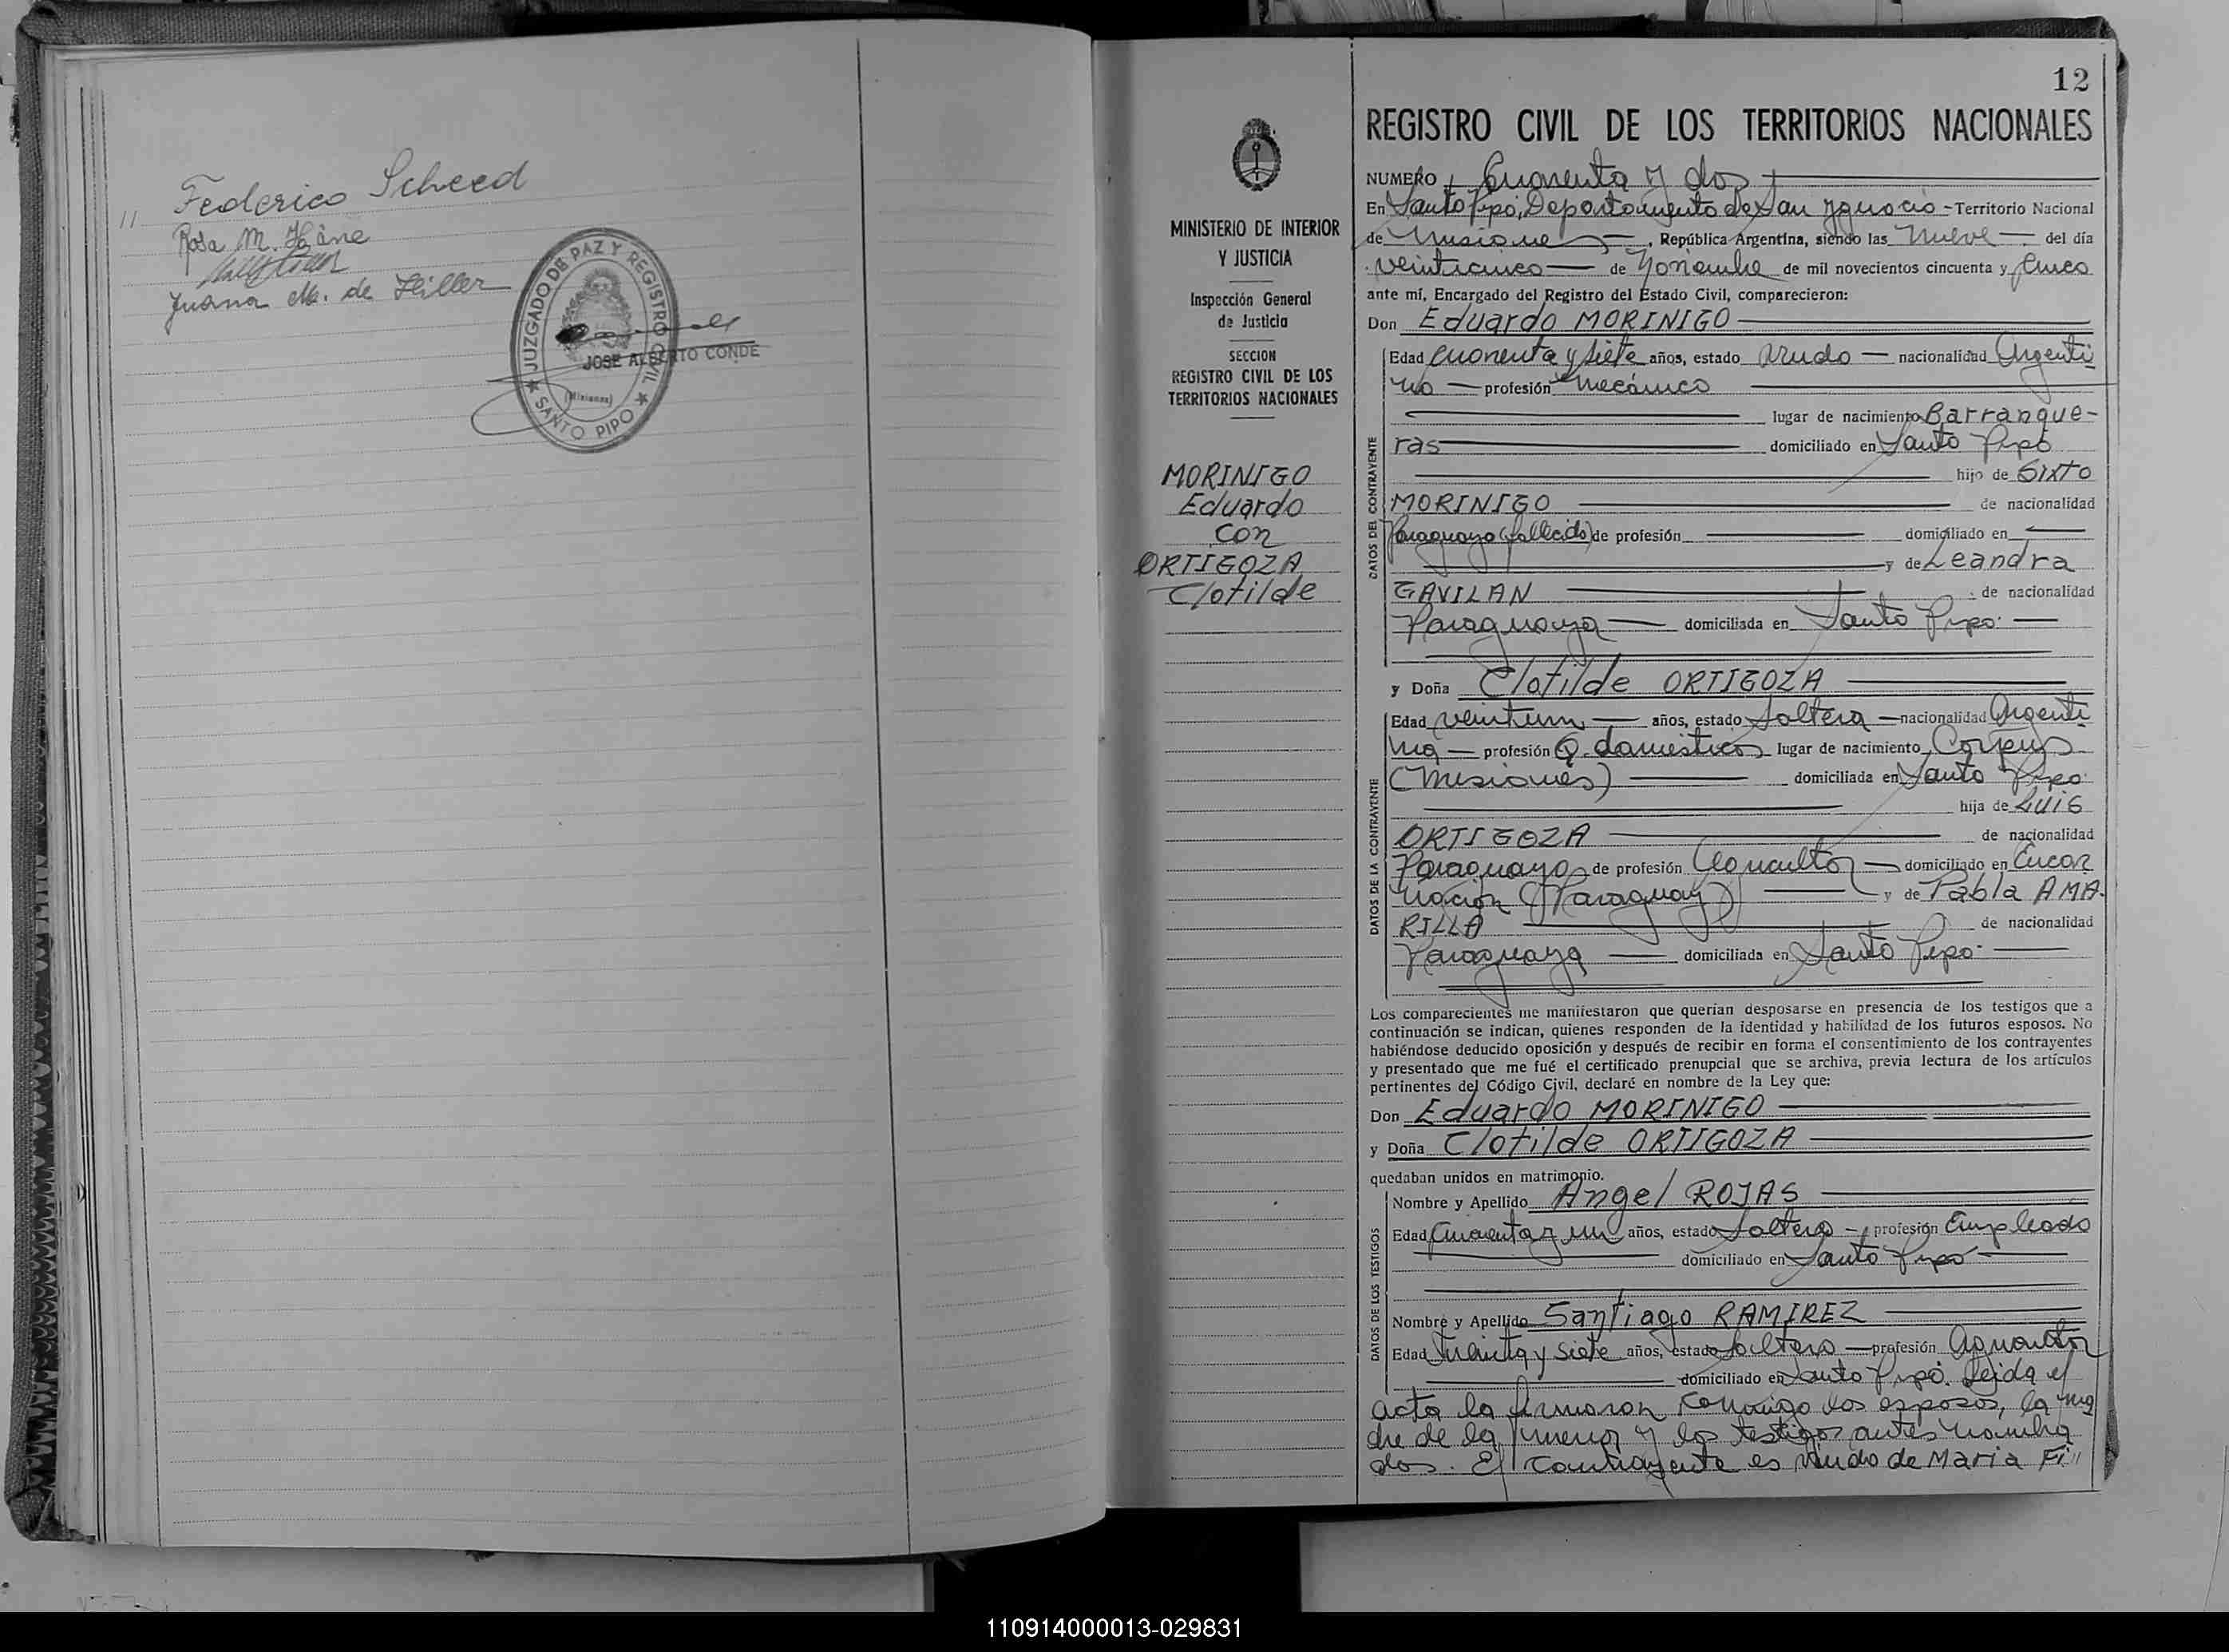 11 Federico Scheed
Rosa M. Hane
Juana M. de Hiller
JUZGADO DE PAZ Y REGISTRO CIVIL
JOSE ALBERTO CONDE
(Misiones)
★ SANTO PIPO ★
MINISTERIO DE INTERIOR
Y JUSTICIA
Inspección General
de Justicia
SECCION
REGISTRO CIVIL DE LOS
TERRITORIOS NACIONALES
MORINIGO
Eduardo
con
ORTIGOZA
Clotilde
12
REGISTRO CIVIL DE LOS TERRITORIOS NACIONALES
NUMERO Cuarenta y dos
En Santo Pipó, Departamento de San Ygnacio - Territorio Nacional
de Misiones, República Argentina, siendo las nueve del día
veinticinco de Noviembre de mil novecientos cincuenta y cinco
ante mí, Encargado del Registro del Estado Civil, comparecieron:
Don Eduardo MORINIGO
Edad cuarenta y siete años, estado viudo nacionalidad Argenti
no profesión mecánico
lugar de nacimiento Barranque-
ras domiciliado en Santo Pipó
hijo de Sixto
MORINIGO de nacionalidad
Paraguayo (fallecido) de profesión domiciliado en
y de Leandra
GAVILAN de nacionalidad
Paraguaya domiciliada en Santo Pipo.
y Doña Clotilde ORTIGOZA
Edad veintiun años, estado Soltera nacionalidad Argenti
na profesión Q. domésticos lugar de nacimiento Corpus
(Misiones) domiciliada en Santo Pipo
hija de Luis
ORTIGOZA de nacionalidad
Paraguayo de profesión Agricultor domiciliado en Encar
nación (Paraguay) y de Pabla AMA-
RILLA de nacionalidad
Paraguaya domiciliada en Santo Pipo.
Los comparecientes me manifestaron que querían desposarse en presencia de los testigos que a
continuación se indican, quienes responden de la identidad y habilidad de los futuros esposos. No
habiéndose deducido oposición y después de recibir en forma el consentimiento de los contrayentes
y presentado que me fué el certificado prenupcial que se archiva, previa lectura de los artículos
pertinentes del Código Civil, declaré en nombre de la Ley que:
Don Eduardo MORINIGO
y Doña Clotilde ORTIGOZA
quedaban unidos en matrimonio.
Nombre y Apellido Angel ROJAS
Edad Cuarenta y un años, estado Soltero profesión Empleado
domiciliado en Santo Pipó
Nombre y Apellido Santiago RAMIREZ
Edad Treinta y siete años, estado Soltero profesión Agricultor
domiciliado en Santo Pipó. Leida el
acta la firmaron conmigo los esposos, la ma
dre de la menor y los testigos antes nombra
dos. El contrayente es viudo de Maria Fi"
DATOS DEL CONTRAYENTE
DATOS DE LA CONTRAYENTE
DATOS DE LOS TESTIGOS
110914000013-029831